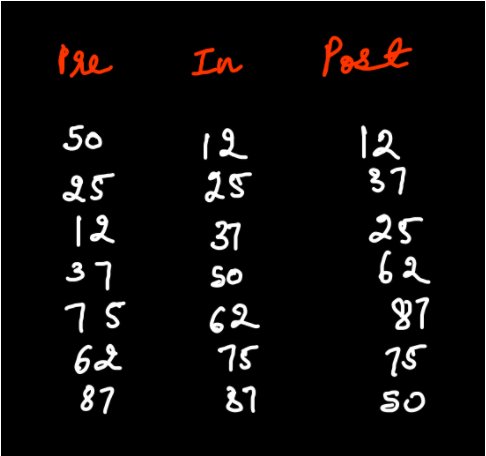 Pre In Post
50 12 12
25 25 37
12 37 25
37 50 62
75 62 87
62 75 75
87 87 50